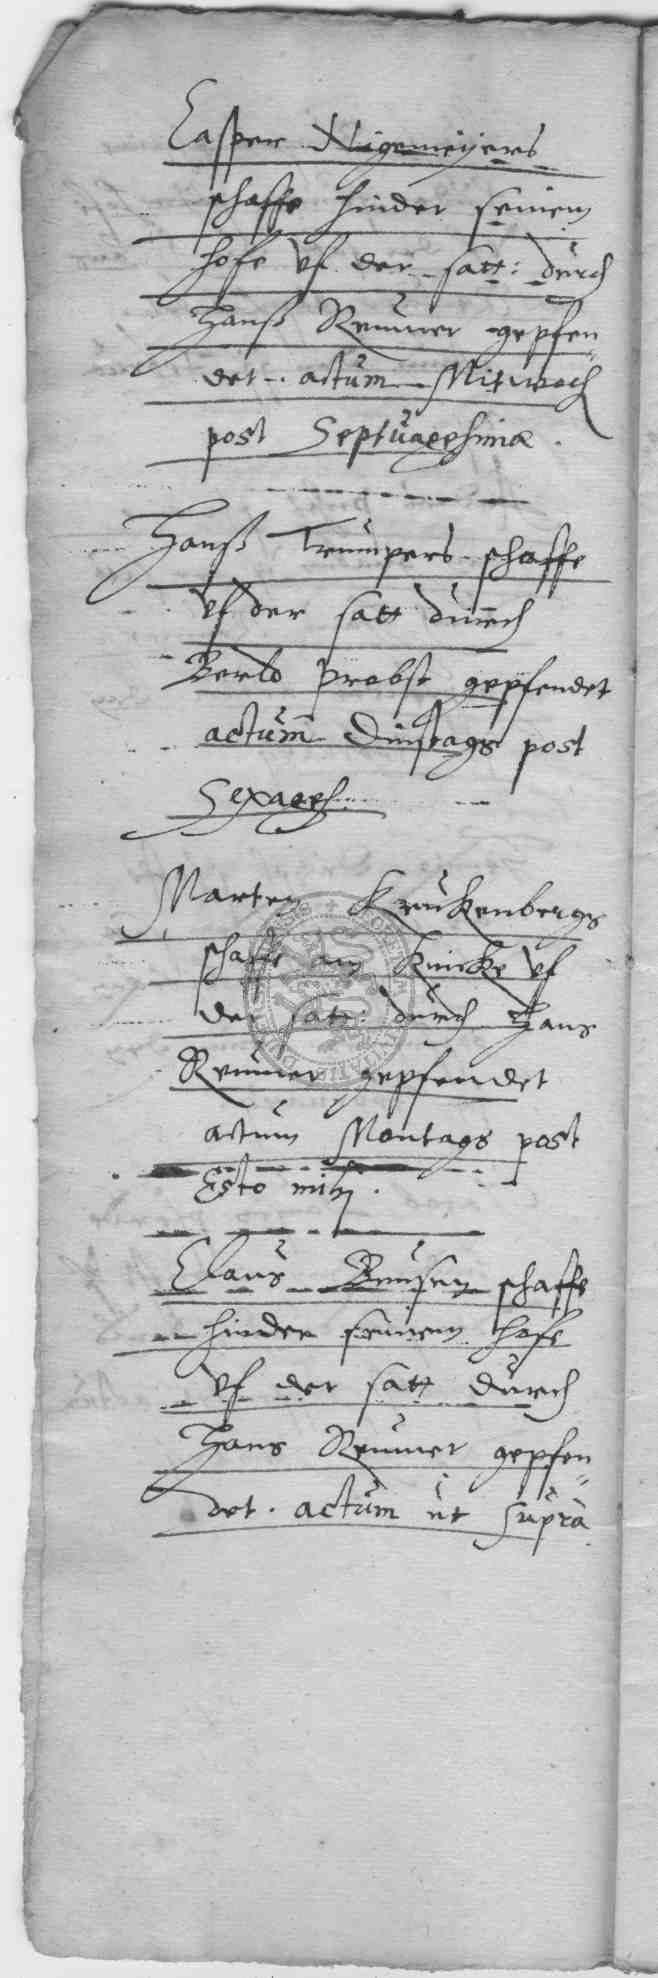 Casper Nigemeÿers
schaffe hinder seinem
hofe vf der satt: durch
Hanß Remmer gepfen-
det. actum Mitwoch
post Septuagesimæ.
Hanß Trumpers schaffe
vf der satt durch
probst gepfendet
actum Dinstags post
Sexages.
Marten Kruckenbergs
schaffe am Knicke vf
der satt: durch Hans
Remmer gepfendet
actum Montags post
Esto mihi.
Claus schaffe
hinder seinem hofe
vf der satt durch
Hans Remmer gepfen-
det. actum ut supra